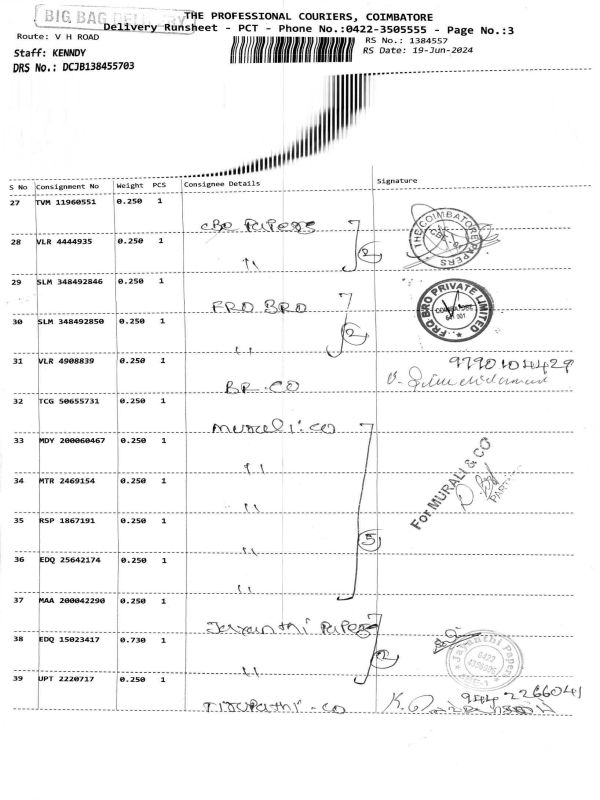 BIG BAG DELIVERY
THE PROFESSIONAL COURIERS, COIMBATORE
Delivery Runsheet - PCT - Phone No.:0422-3505555 - Page No.:3
Route: V H ROAD
RS No.: 1384557
Staff: KENNDY
RS Date: 19-Jun-2024
DRS No.: DCJB138455703
S No Consignment No Weight PCS Consignee Details Signature
27 TVM 11960551 0.250 1
CBE PAPERS
THE COIMBATORE PAPERS
28 VLR 4444935 0.250 1
" 2
29 SLM 348492846 0.250 1
FRQ BRO
FRQ BRO PRIVATE LIMITED
COIMBATORE
641 001
30 SLM 348492850 0.250 1
" 2
31 VLR 4908839 0.250 1
BR. CO
32 TCG 50655731 0.250 1
Murali. co
33 MDY 200060467 0.250 1
"
For MURALI & CO
34 MTR 2469154 0.250 1
"
35 RSP 1867191 0.250 1
" 5
36 EDQ 25642174 0.250 1
"
37 MAA 200042290 0.250 1
Jayanthi Papers
Jayanthi Papers
0422
38 EDQ 15023417 0.730 1
" 2
39 UPT 2220717 0.250 1
Tirupathi - co